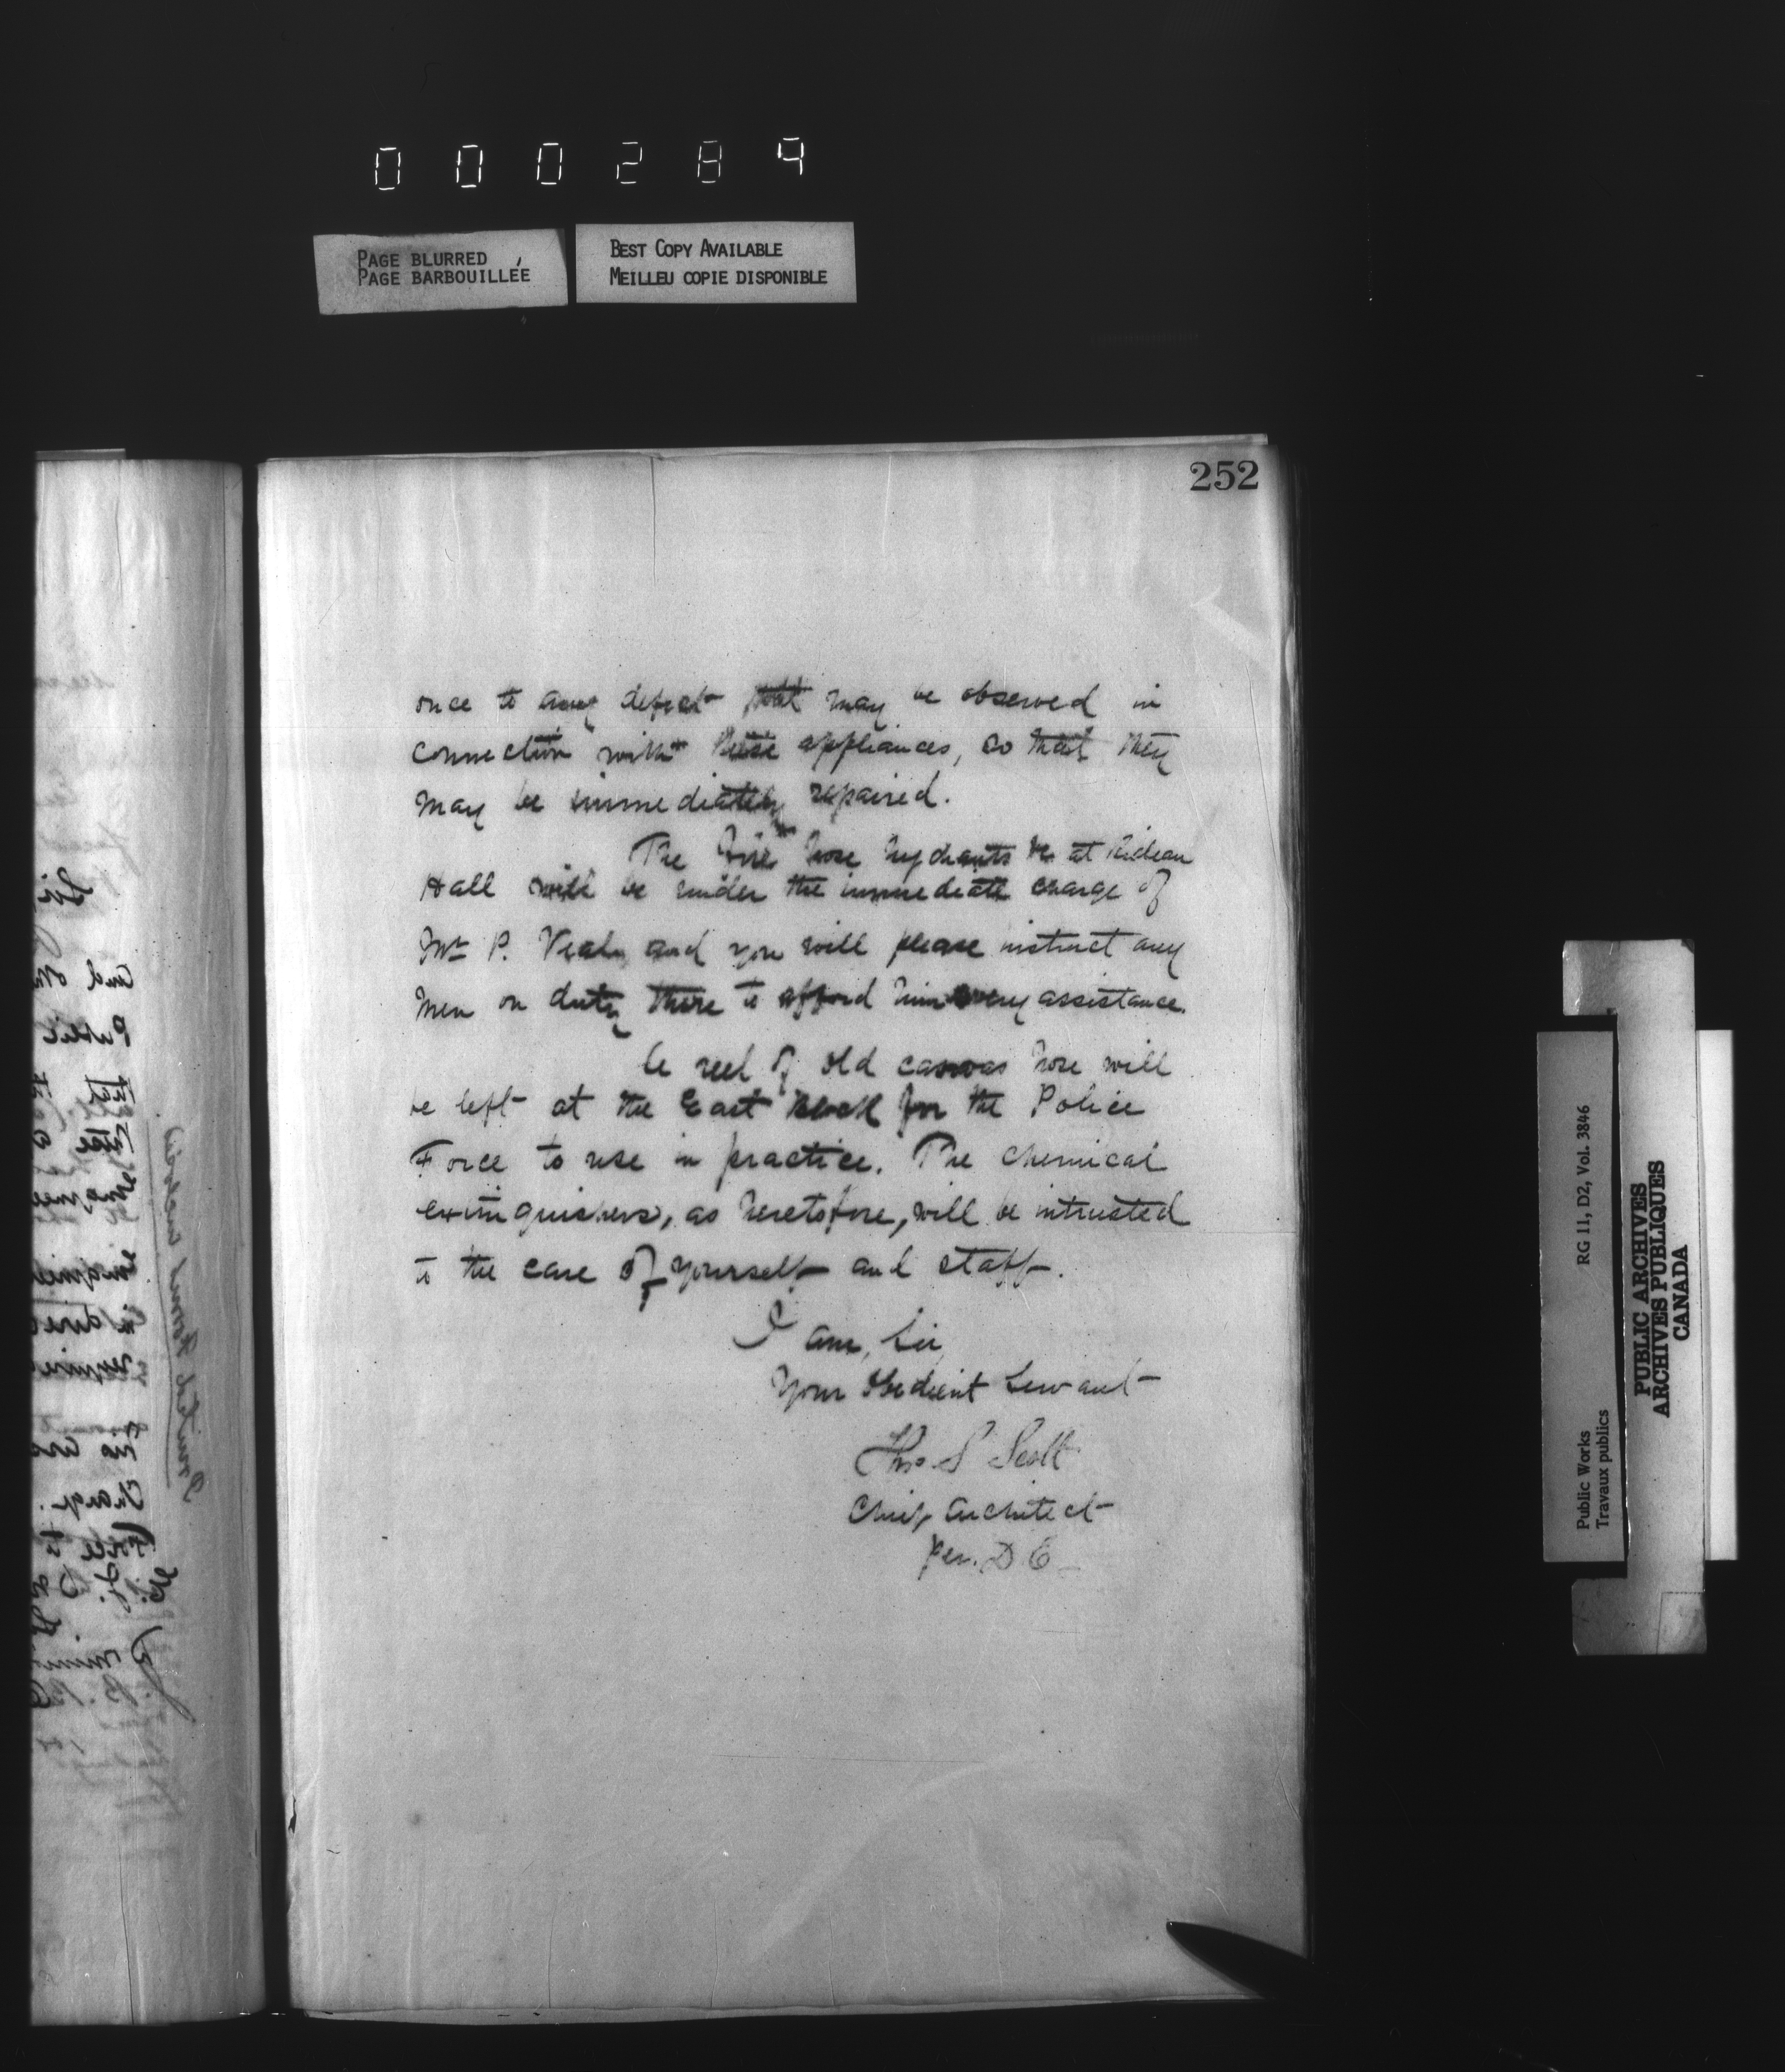 000284
PAGE BLURRED
PAGE BARBOUILLÉE
BEST COPY AVAILABLE
MEILLEU COPIE DISPONIBLE
252
once to any defect that may be observed in
connection with these appliances, so that they
may be immediately repaired.
The Fire hose hydrants &c at Rideau
Hall will be under the immediate charge of
Mr P. and you will please instruct any
men on duty there to afford him every assistance.
A reel of old canvas hose will
be left at the East Block for the Police
Force to use in practice. The chemical
extinguishers, as heretofore, will be intrusted
to the care of yourself and staff.
I am, Sir
Your Obedient Servant
Thos S Scott
Chief Architect
per. D E
Public Works
Travaux publics
RG 11, D2, Vol. 3846
PUBLIC ARCHIVES
ARCHIVES PUBLIQUES
CANADA